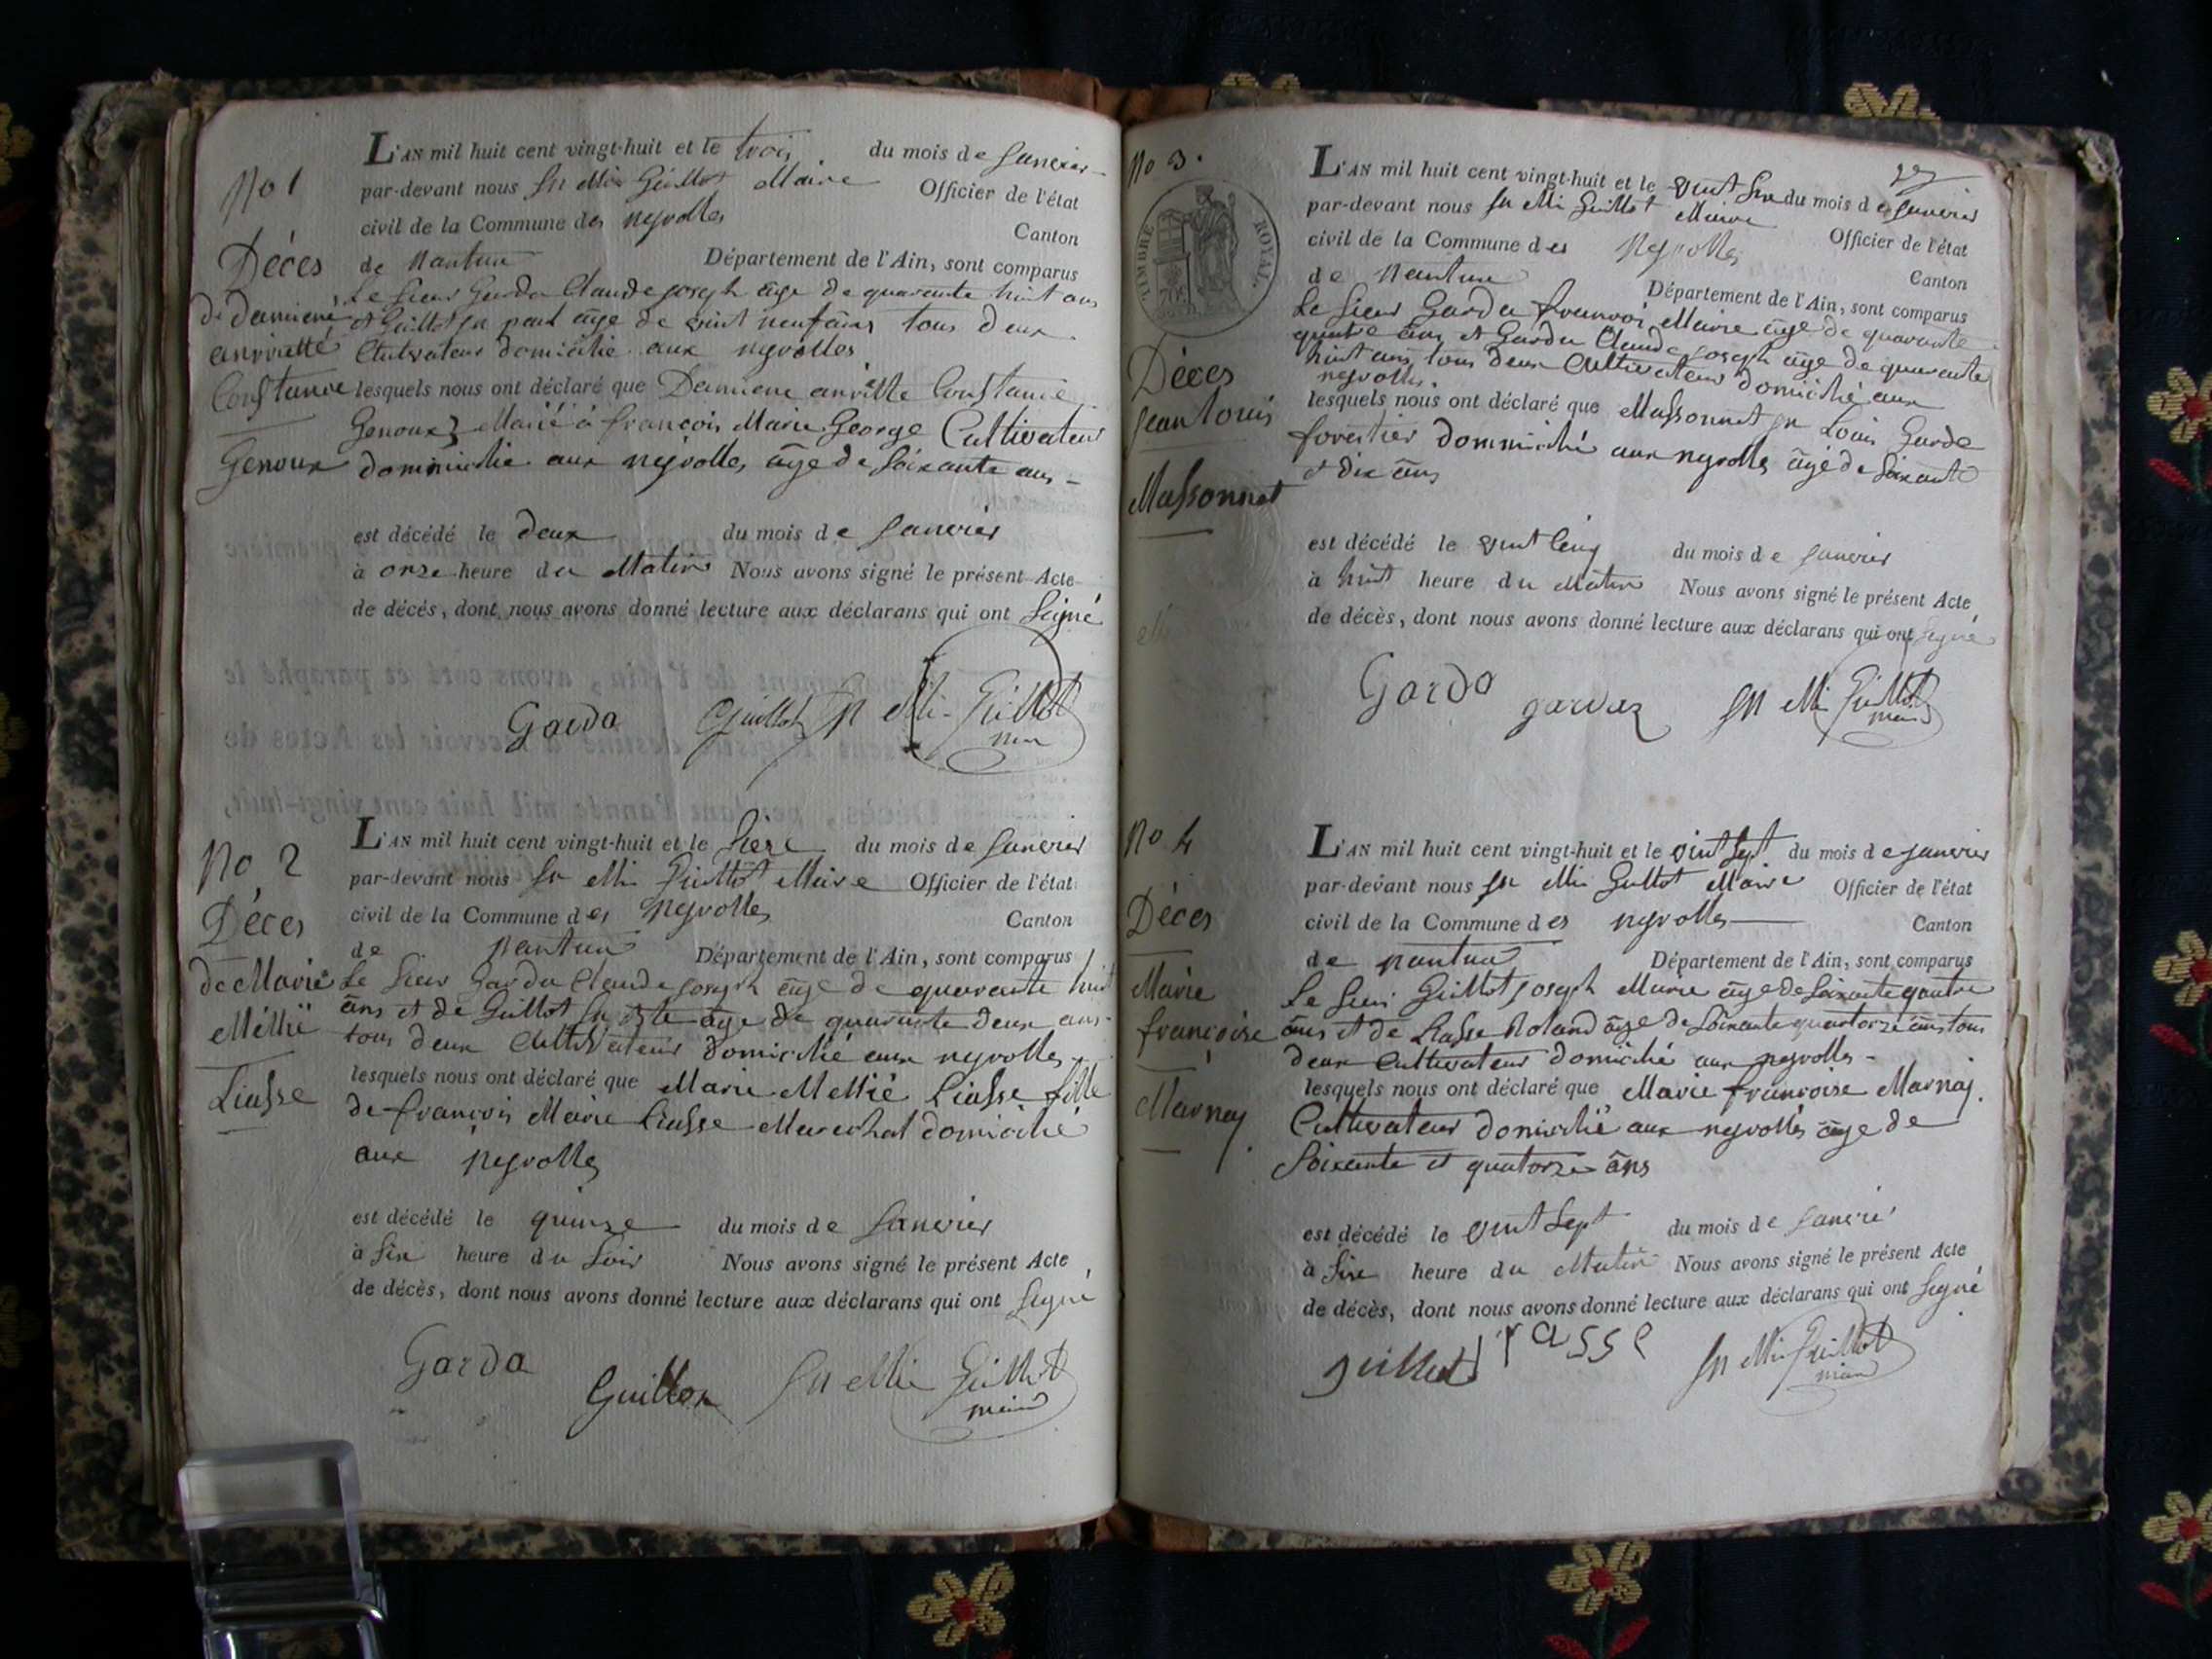 No 1
Déces
de damiené
anriette
Constance
Genoux
L'AN mil huit cent vingt-huit et le trois du mois de Janvier
par-devant nous Jn Mie Guillot Maire Officier de l'état
civil de la Commune des neyrolles Canton
de Nantua Département de l'Ain, sont comparus
Le Sieur Garda Claude joseph âge de quarante huit ans
et Guillot Jn paul âge de vint neuf ans tous deux
Cultivateur domicilie aux neyrolles
lesquels nous ont déclaré que Damiene anriette Constance
Genoux Marié à françois Marie George Cultivateur
domicilie aux neyrolles âge de Soixante ans
est décédé le deux du mois de Janvier
à onze heure du Matin Nous avons signé le présent Acte
de décès, dont nous avons donné lecture aux déclarans qui ont Signé
Garda Guillot Jn Mie Guillot
No 2
Déces
de Marie
Méllië
Liasse
L'AN mil huit cent vingt-huit et le Sieze du mois de Janvier
par-devant nous Jn Mie Guillot Maire Officier de l'état
civil de la Commune des Neyrolles Canton
de nantua Département de l'Ain, sont comparus
Le Sieur Garda Claude joseph âge de quarante huit
ans et de Guillot âge de quarante deux ans
tous deux Cultivateur domicilié aux neyrolles
lesquels nous ont déclaré que Marie Mellié Liasse fille
de françois Marie Liasse Marechal domicilié
aux neyrolles
est décédé le quinze du mois de Janvier
à Six heure du Soir Nous avons signé le présent Acte
de décès, dont nous avons donné lecture aux déclarans qui ont Signé
Garda Guillon Jn Mie Guillot
maire
No 3.
TIMBRE ROYAL
Déces
jean louis
Massonnet
L'AN mil huit cent vingt-huit et le vint Six du mois de Janvier
par-devant nous Jn Mie Guillot Maire Officier de l'état
civil de la Commune des Neyrolles Canton
de nantua Département de l'Ain, sont comparus
Le Sieur Garda françois Marie âge de quarante
quatre ans et Garda Claude joseph âge de quarante
huit ans tous deux Cultivateur domicilié aux
neyrolles.
lesquels nous ont déclaré que Massonnet jn Louis Garde
forestier dommicilié aux neyrolles âgé de Soixante
et dix ans
est décédé le vint Cinq du mois de Janvier
à huit heure du Matin Nous avons signé le présent Acte
de décès, dont nous avons donné lecture aux déclarans qui ont Signé
Garda gardaz Jn Mie Guillot
maire
No 4
Déces
Marie
françoise
Marnay
L'AN mil huit cent vingt-huit et le vint Sept du mois de janvier
par-devant nous Jn Mie Guillot Maire Officier de l'état
civil de la Commune des neyrolles Canton
de nantua Département de l'Ain, sont comparus
Le Sieur Guillot joseph Marie âge de Soixante quatre
ans et de Liasse Roland âge de Soixante quartorze ans tous
deux Cultivateur domicilié aux neyrolles
lesquels nous ont déclaré que Marie françoise Marnay
Cultivateur domicilié aux neyrolles âge de
Soixante et quatorze ans
est décédé le vint Sept du mois de Janvié
à Six heure du Matin Nous avons signé le présent Acte
de décès, dont nous avons donné lecture aux déclarans qui ont Signé
guillot liasse Jn Mie Guillot
maire